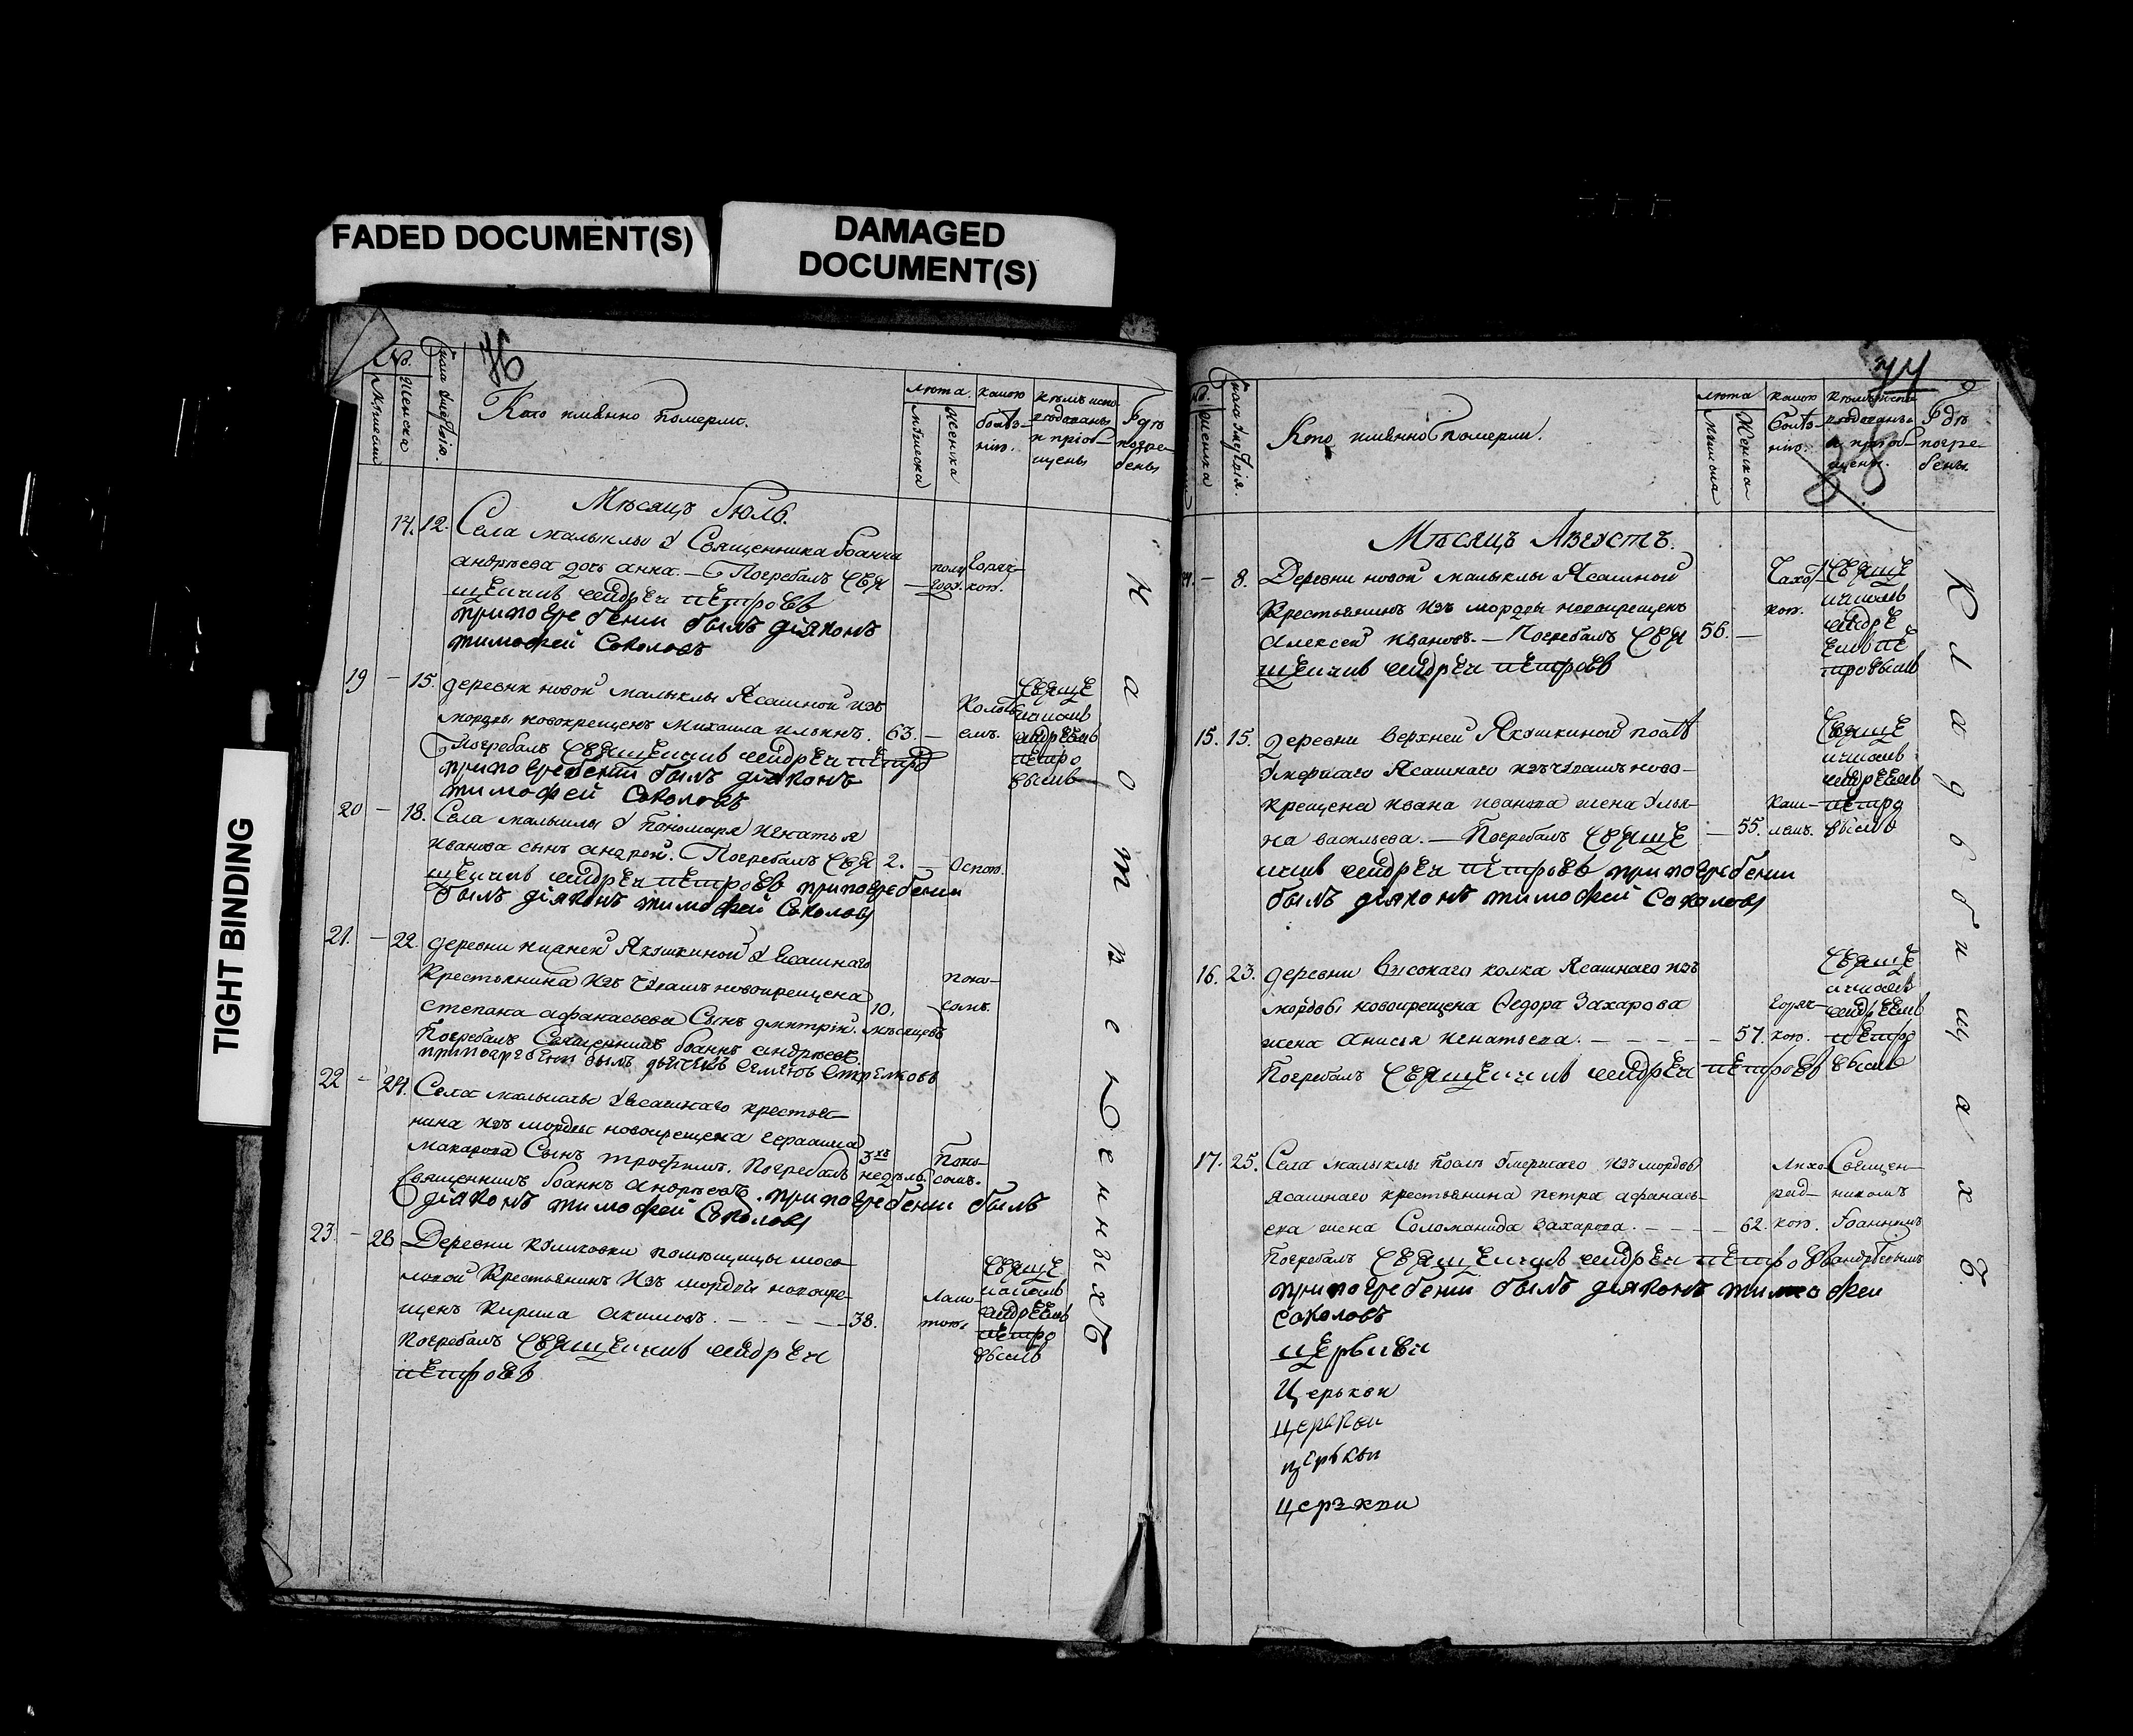 FADED DOCUMENT(S)
DAMAGED
DOCUMENT(S)
TIGHT BINDING
76
№.
Мужеска
Женска
Кто имянно померли.
люта.
мужеска
женска
какою
болѣз-
нію.
кѣмъ испо-
вѣдованы
и пріоб-
щены
Гдѣ
погре-
бены
Мѣсяцъ Іюль.
14. 12. Села малыклы Священника Іоанна
андрѣева дочь анна. — Погребалъ свя
полу
год.
горяч-
кою.
щенникъ андрей петровъ
при погребении былъ діяконъ
тимофей Соколовъ
19 — 15. деревни новой малыклы Ясашной изъ
мордвы новокрещенъ Михаила илькинъ. 63. —
Погребалъ священникъ андрей петро
при погребении былъ діяконъ
тимофей Соколовъ
свяще
нникомъ
андреемъ
петро
вымъ
20 — 18. Села малыклы пономаря игнатья
иванова сынъ андрей. Погребалъ свя 2. — Оспою.
щенникъ андрей петровъ при погребении
былъ діяконъ тимофей Соколовъ
21. — 22. деревни нижней Якушкиной ясашнаго
Крестьянина изъ Чувашъ новокрещена
степана афанасьева Сынъ дмитрій. 10. мѣсяцевъ
поно-
сомъ.
Погребалъ Священникъ Іоаннъ андрѣевъ.
при погребении былъ дьячекъ Стрелковъ
22 — 24. Села малыклы ясашнаго крестья-
нина изъ мордвы новокрещена герасима
макарова Сынъ трофимъ. Погребалъ 3хъ недѣль.
Поно-
сомъ.
Священникъ Іоаннъ андрѣевъ. при погребении былъ
діяконъ тимофей Соколовъ
23. — 28 Деревни куликовки помѣщицы
Крестьянинъ изъ мордвы новокре-
щенъ кирила акимовъ. — — — — 38.
Погребалъ священникъ андрей
петровъ
свяще
нникомъ
андреемъ
петро
вымъ
На отведенныхъ
77
38
женска
Кто имянно померли.
люта
женска
какою
болѣз-
нію.
и пріоб-
щены.
Гдѣ
погре-
бены.
Мѣсяцъ Августъ.
— 8. Деревни новой малыклы Ясашной
Крестьянинъ изъ мордвы новокрещенъ
Алексей ивановъ. — Погребалъ свя 56. —
щенникъ андрей петровъ
Чахот
кою.
свяще
нникомъ
андре
емъ пе
тровымъ
15. 15. деревни верхней Якушкиной послѣ
умершаго Ясашнаго изъ чувашъ ново-
крещена ивана иванова жена улья-
на васильева. — Погребалъ свяще — 55.
нникъ андрей петровъ при погребении
былъ діяконъ тимофей Соколовъ
каш-
лемъ.
свяще
нникомъ
андреемъ
петро
вымъ
16. 23. деревни Высокаго колка Ясашнаго изъ
мордвы новокрещена Федора Захарова
жена анисья игнатьева. — — — — — 57.
Погребалъ священникъ андрей петровъ
горяч-
кою.
свяще
нникомъ
андреемъ
петро
вымъ
17. 25. Села малыклы послѣ умершаго изъ мордвы
ясашнаго крестьянина петра афанась-
ева жена Соломанида Захарова. — — — — 62.
Погребалъ священникъ андрей петровъ
при погребении былъ діяконъ тимофеи
Соколовъ
лихо-
рад-
кою.
Священ-
никомъ
Іоанномъ
андрѣевымъ
церькви
Церькви
церькви
церькви
церзкви
Кладбищахъ